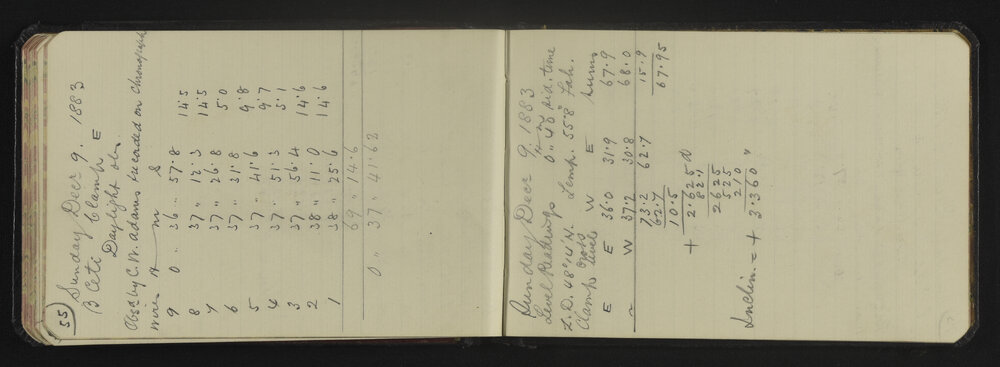 55
Sunday Decr 9. 1883
β Ceti Clamp E
Daylight obs.
Obsd by C. W. Adams recorded on Chronograph
Wires h m s
9 0 " 36 " 57.8 14.5
8 37 " 12.3 14.5
7 37 " 26.8 5.0
6 37 " 31.8 9.8
5 37 " 41.6 9.7
4 37 " 51.3 5.1
3 37 " 56.4 14.6
2 38 " 11.0 14.6
1 38 " 25.6
69 " 14.6
0 " 37 " 41.62
Sunday Decr 9. 1883
Level Readings sid. time
Z. D. 48° 14' N. Temp. 55.8 Fah.
Clamp Cross levels W E sums
E E 36.0 31.9 67.9
W 37.2 30.8 68.0
73.2 62.7 15.9
62.7 67.95
10.5
+ 2.625 d
82.1
2625
525
210
Inclin. = + 3.360